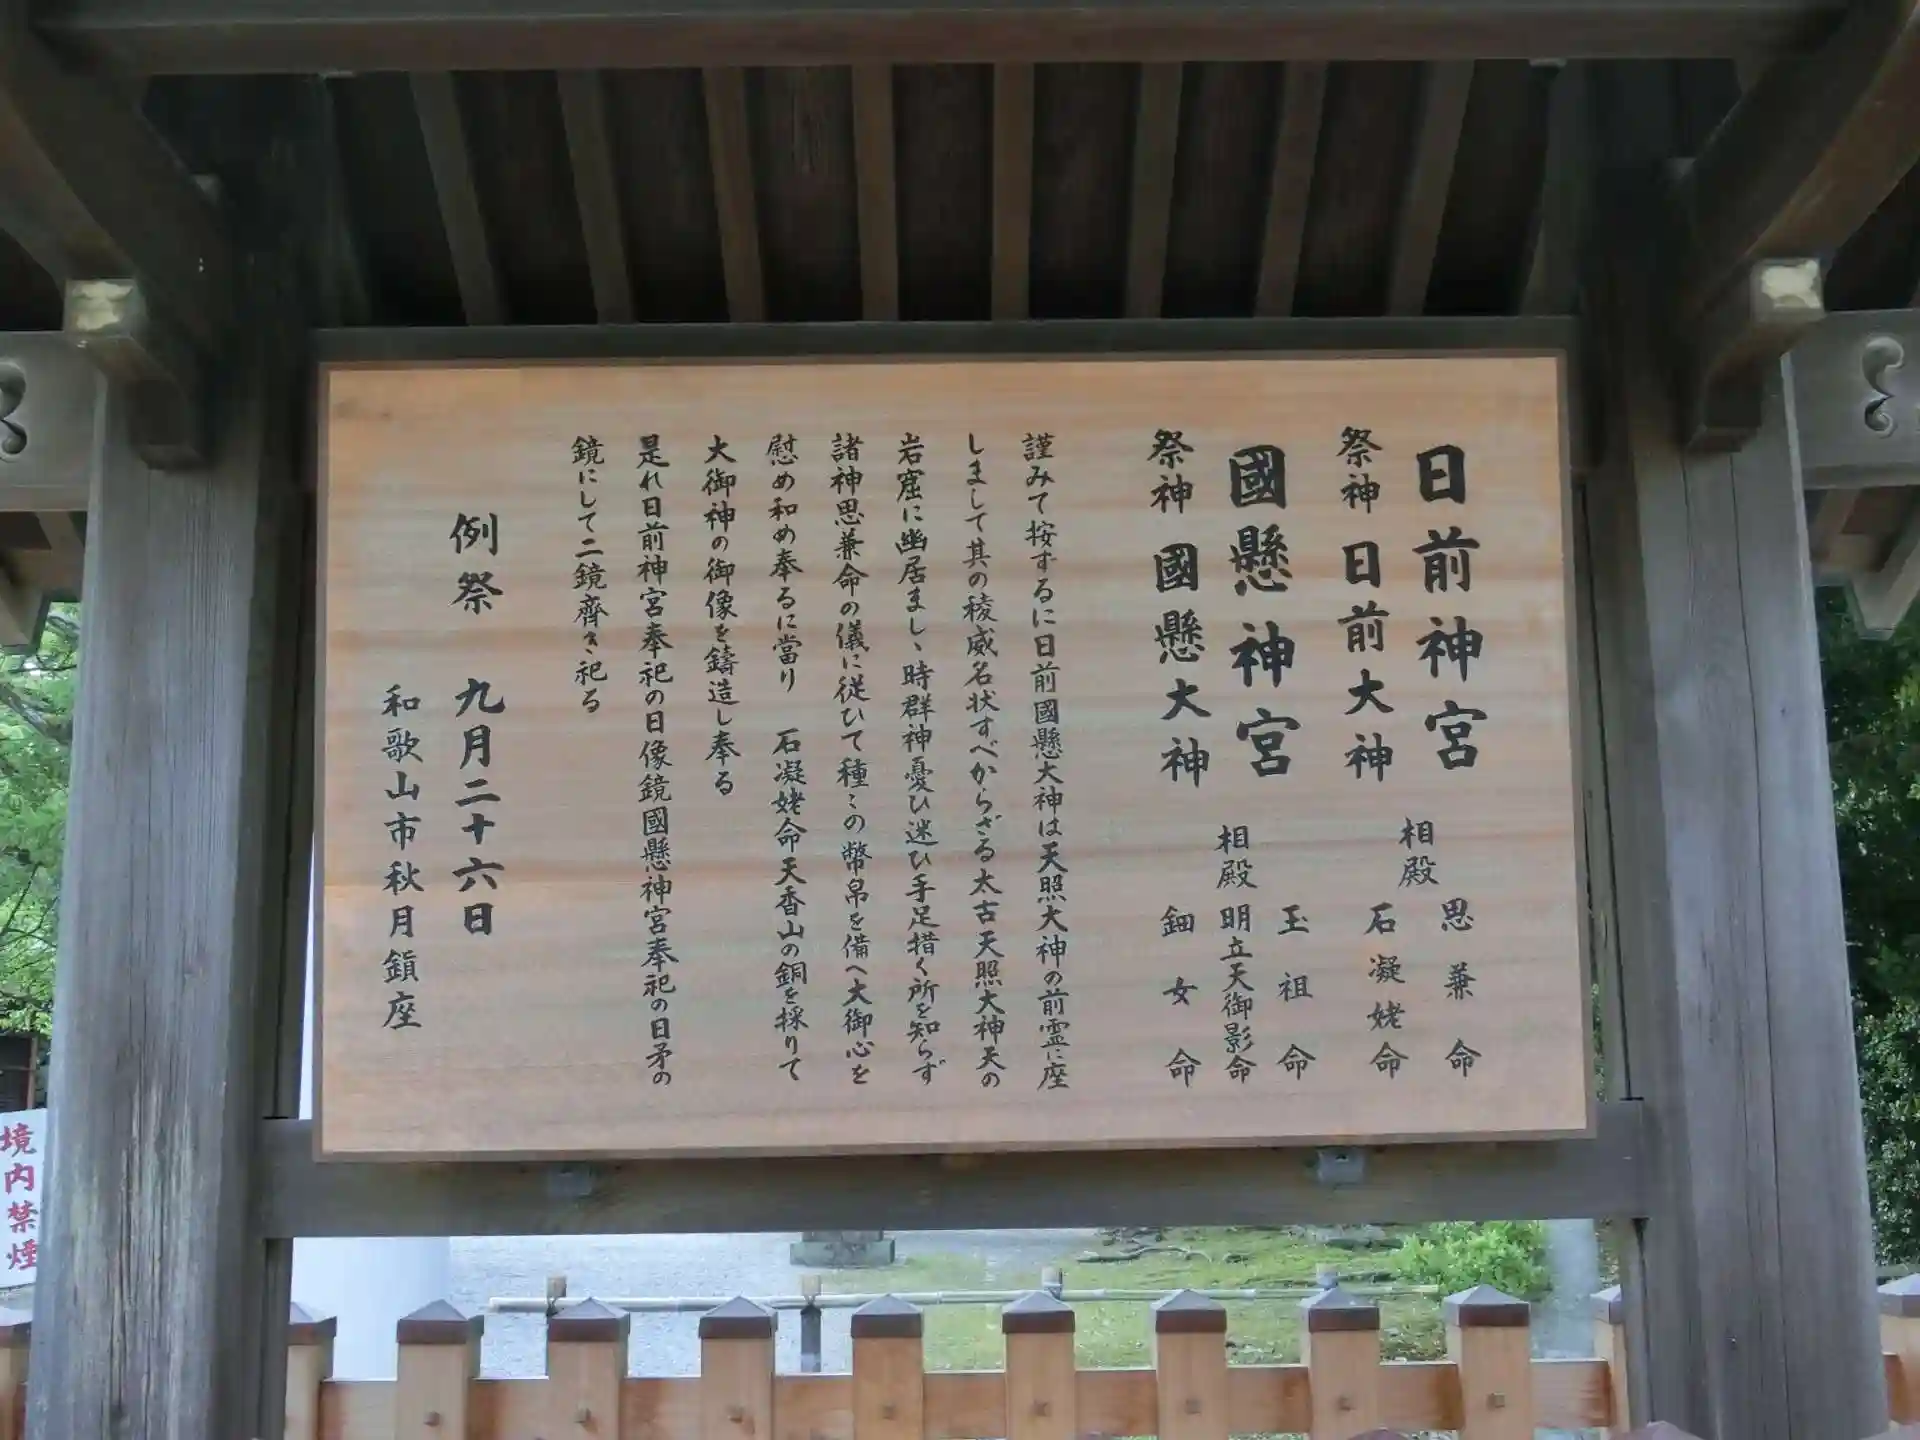 日前神宮
祭神 日前大神
相殿
思兼命
石凝姥命
國懸神宮
祭神 國懸大神
相殿
玉祖命
明立天御影命
鈿女命
謹みて按ずるに日前國懸大神は天照大神の前霊に座
しまして其の稜威名状すべからざる太古天照大神天の
岩窟に幽居ましゝ時群神憂ひ迷ひ手足措く所を知らず
諸神思兼命の儀に従ひて種々の幣帛を備へ大御心を
慰め和め奉るに當り 石凝姥命天香山の銅を採りて
大御神の御像を鑄造し奉る
是れ日前神宮奉祀の日像鏡國懸神宮奉祀の日矛の
鏡にして二鏡齊き祀る
例祭 九月二十六日
和歌山市秋月鎮座
境内禁煙